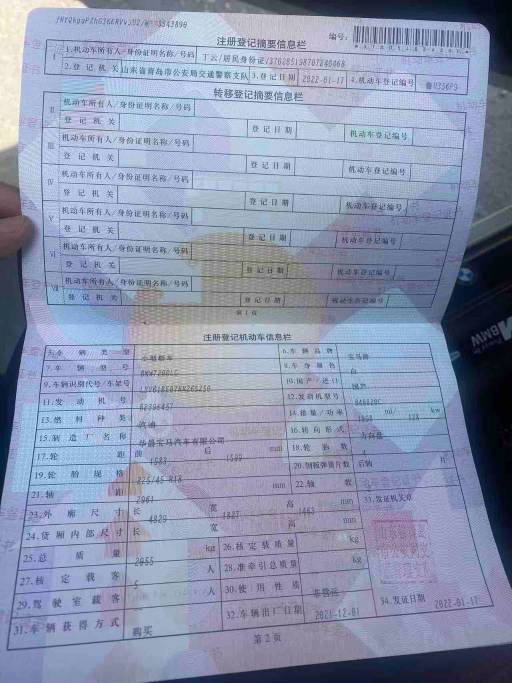 注册登记摘要信息栏
编号:
Ⅰ 1.机动车所有人/身份证明名称/号码 丁云/居民身份证/
2.登记机关 山东省青岛市公安局交通警察支队 3.登记日期 2022-01-17 4.机动车登记编号
转移登记摘要信息栏
Ⅱ 机动车所有人/身份证明名称/号码
登记机关 登记日期 机动车登记编号
Ⅲ 机动车所有人/身份证明名称/号码
登记机关 登记日期 机动车登记编号
Ⅳ 机动车所有人/身份证明名称/号码
登记机关 登记日期 机动车登记编号
Ⅴ 机动车所有人/身份证明名称/号码
登记机关 登记日期 机动车登记编号
Ⅵ 机动车所有人/身份证明名称/号码
登记机关 登记日期 机动车登记编号
Ⅶ 机动车所有人/身份证明名称/号码
登记机关 登记日期 机动车登记编号
第1页
注册登记机动车信息栏
5.车辆类型 小型轿车 6.车辆品牌 宝马牌
7.车辆型号 8.车身颜色 白
9.车辆识别代号/车架号 10.国产/进口 国产
11.发动机号 12.发动机型号
13.燃料种类 汽油 14.排量/功率 ml/ kw
15.制造厂名称 华晨宝马汽车有限公司 16.转向形式 方向盘
17.轮距 前 1583 后 mm 18.轮胎数
19.轮胎规格 225/45 R18 20.钢板弹簧片数 后轴 片
21.轴距 2961 mm 22.轴数
23.外廓尺寸 长 4829 宽 1827 高 1463 mm 33.发证机关章
24.货厢内部尺寸 长 宽 高 mm
25.总质量 2055 kg 26.核定载质量 kg
27.核定载客 5 人 28.准牵引总质量 kg
29.驾驶室载客 人 30.使用性质 非营运
31.车辆获得方式 购买 32.车辆出厂日期 2021-12-01 34.发证日期 2022-01-17
第2页
BMW